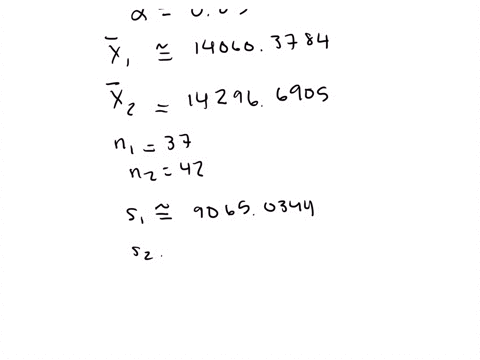 α = 0.0
X̄₁ ≅ 14060.3784
X̄₂ = 14296.6905
n₁ = 37
n₂ = 42
s₁ ≅ 9065.0344
s₂.